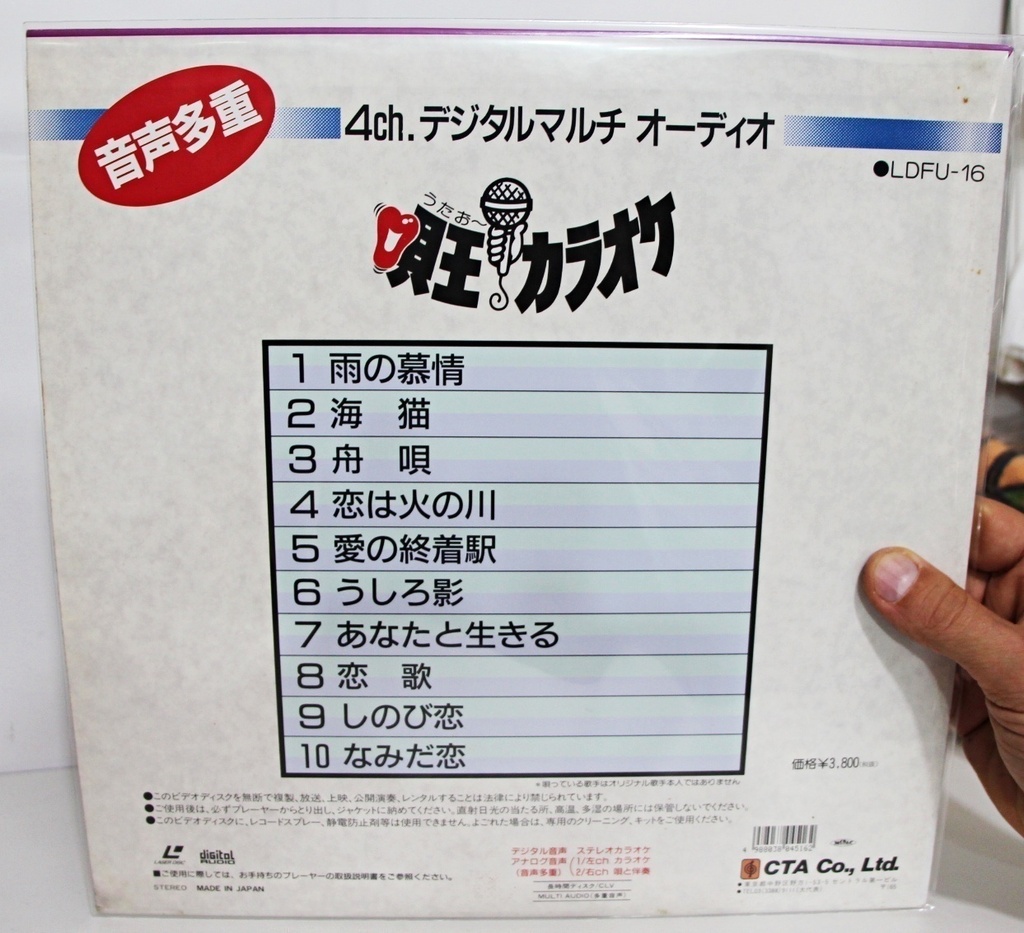 音声多重
4ch.デジタルマルチ オーディオ
●LDFU-16
うたお〜
唄王カラオケ
1 雨の慕情
2 海 猫
3 舟 唄
4 恋は火の川
5 愛の終着駅
6 うしろ影
7 あなたと生きる
8 恋 歌
9 しのび恋
10 なみだ恋
価格¥3,800
*唄っている歌手はオリジナル歌手本人ではありません
●このビデオディスクを無断で複製、放送、上映、公開演奏、レンタルすることは法律により禁じられています。
●ご使用後は、必ずプレーヤーからとり出し、ジャケットに納めてください。直射日光の当たる所、高温、多湿の場所には保管しないでください。
●このビデオディスクに、レコードスプレー、静電防止剤等は使用できません。よごれた場合は、専用のクリーニング、キットをご使用ください。
LASER DISC
digital AUDIO
■ご使用に際しては、お手持ちのプレーヤーの取扱説明書をご参照ください。
STEREO MADE IN JAPAN
デジタル音声 ステレオカラオケ
アナログ音声 (1/左ch カラオケ
(音声多重) 2/右ch 唄と伴奏
長時間ディスク/CLV
MULTI AUDIO(多重音声)
CTA Co., Ltd.